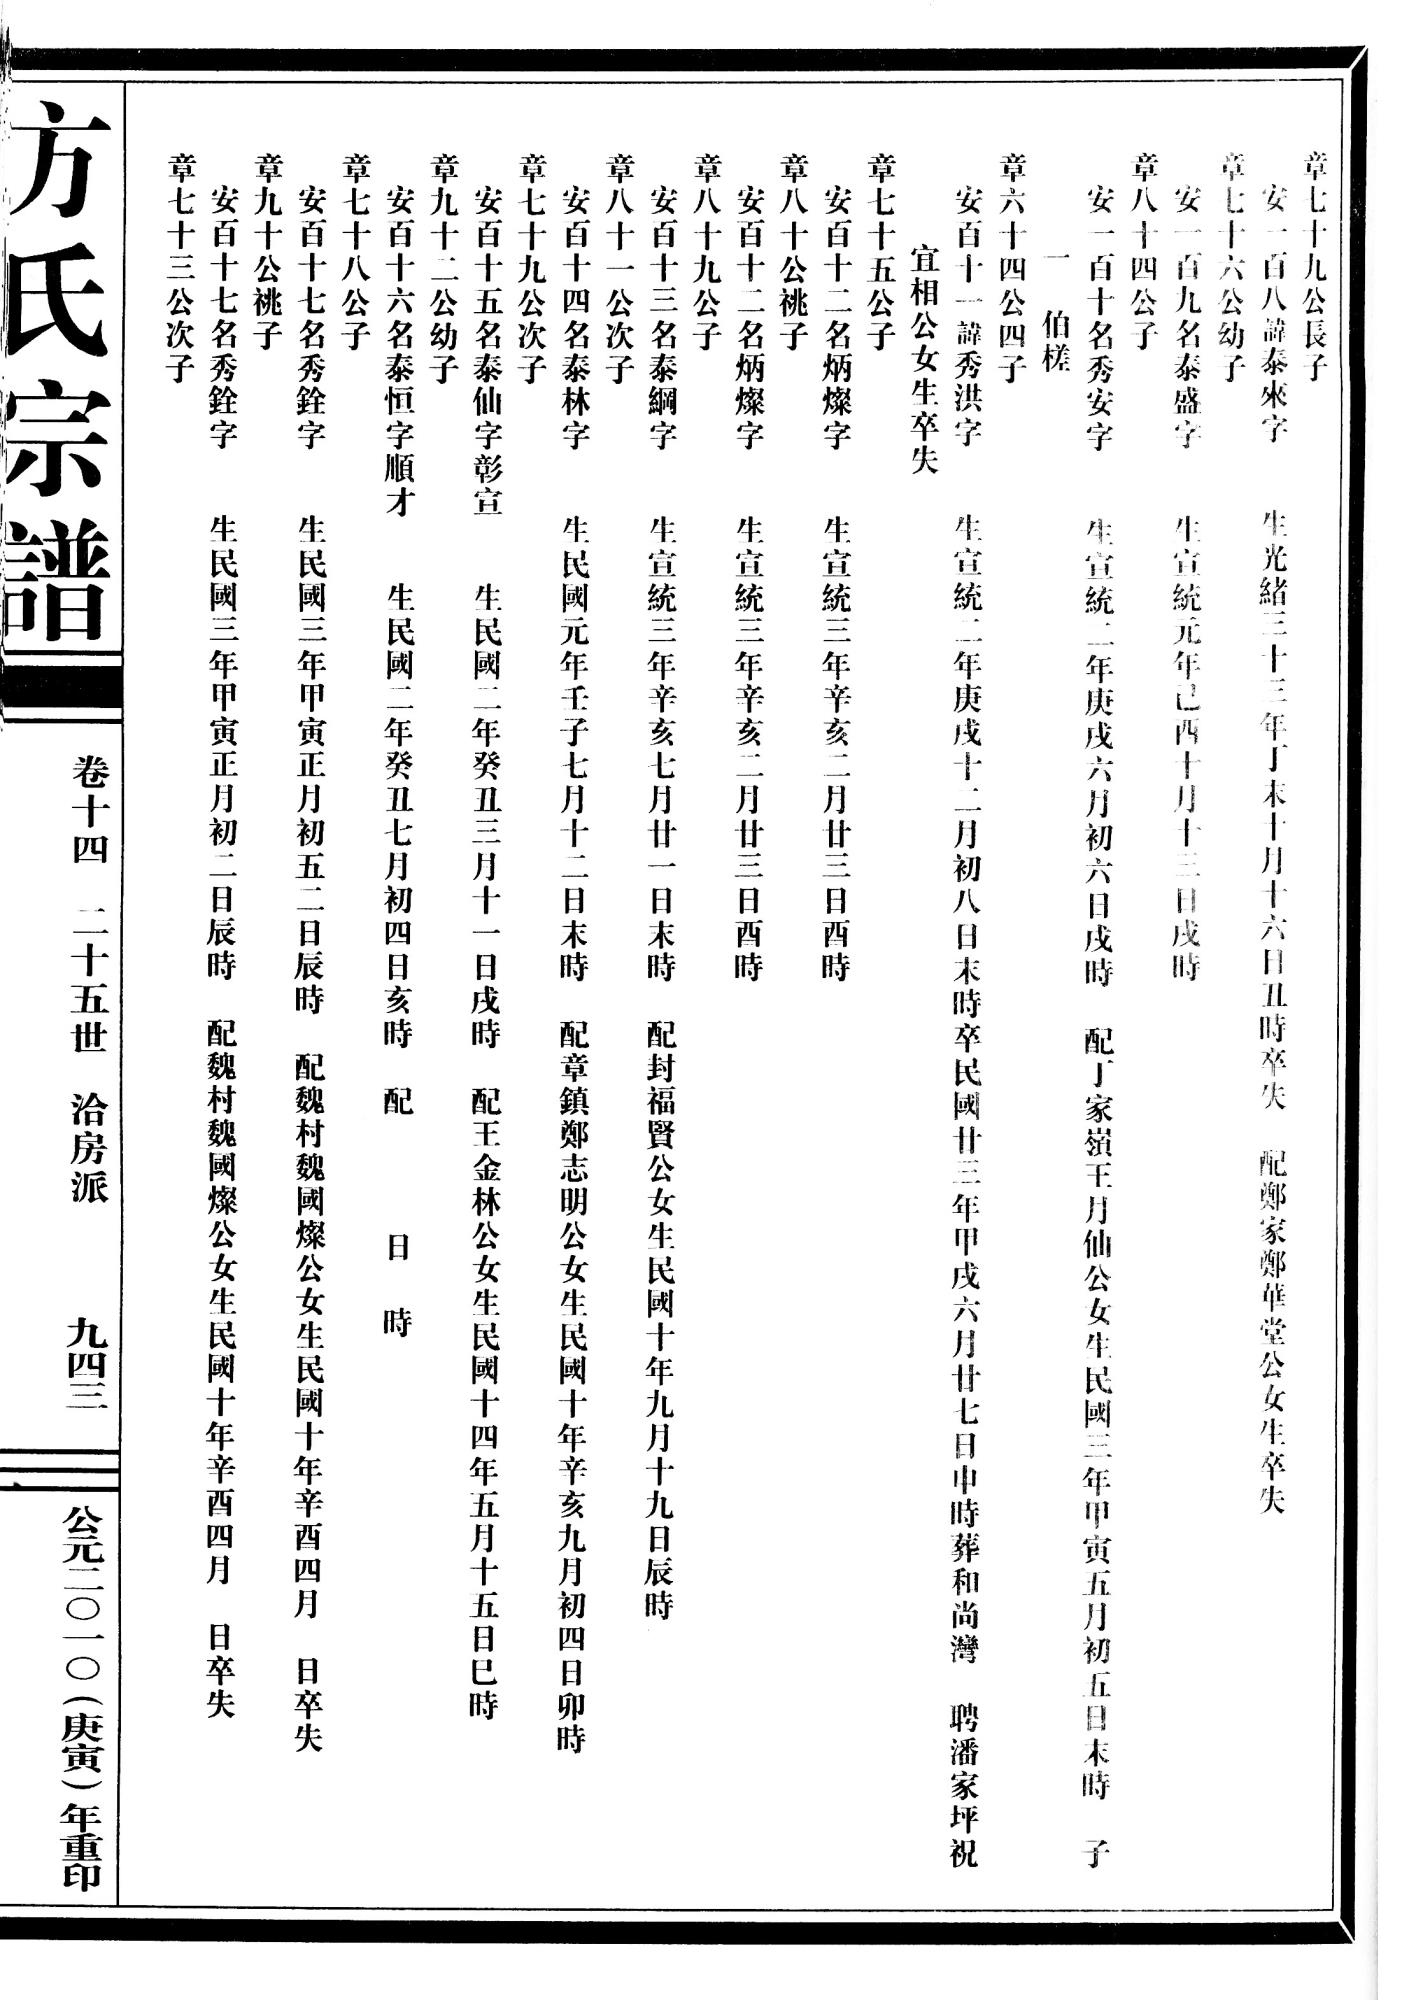 章七十九公長子
安一百八諱泰來字　生光緒三十三年丁未十月十六日丑時卒失　配鄭家鄭華堂公女生卒失
章七十六公幼子
安一百九名泰盛字　生宣統元年己酉十月十三日戌時
章八十四公子
安一百十名秀安字　生宣統二年庚戌六月初六日戌時　配丁家嶺王月仙公女生民國三年甲寅五月初五日末時　子
一　伯槎
章六十四公四子
安百十一諱秀洪字　生宣統二年庚戌十二月初八日末時卒民國廿三年甲戌六月廿七日申時葬和尚灣　聘潘家坪祝
宜相公女生卒失
章七十五公子
安百十二名炳燦字　生宣統三年辛亥二月廿三日酉時
章八十公祧子
安百十二名炳燦字　生宣統三年辛亥二月廿三日酉時
章八十九公子
安百十三名泰綱字　生宣統三年辛亥七月廿一日末時　配封福賢公女生民國十年九月十九日辰時
章八十一公次子
安百十四名泰林字　生民國元年壬子七月十二日末時　配章鎮鄭志明公女生民國十年辛亥九月初四日卯時
章七十九公次子
安百十五名泰仙字彰宣　生民國二年癸丑三月十一日戌時　配王金林公女生民國十四年五月十五日巳時
章九十二公幼子
安百十六名泰恒字順才　生民國二年癸丑七月初四日亥時　配　日　時
章七十八公子
安百十七名秀銓字　生民國三年甲寅正月初五二日辰時　配魏村魏國燦公女生民國十年辛酉四月　日卒失
章九十公祧子
安百十七名秀銓字　生民國三年甲寅正月初二日辰時　配魏村魏國燦公女生民國十年辛酉四月　日卒失
章七十三公次子
方氏宗譜　卷十四　二十五世　洽房派　九四三　公元二〇一〇（庚寅）年重印